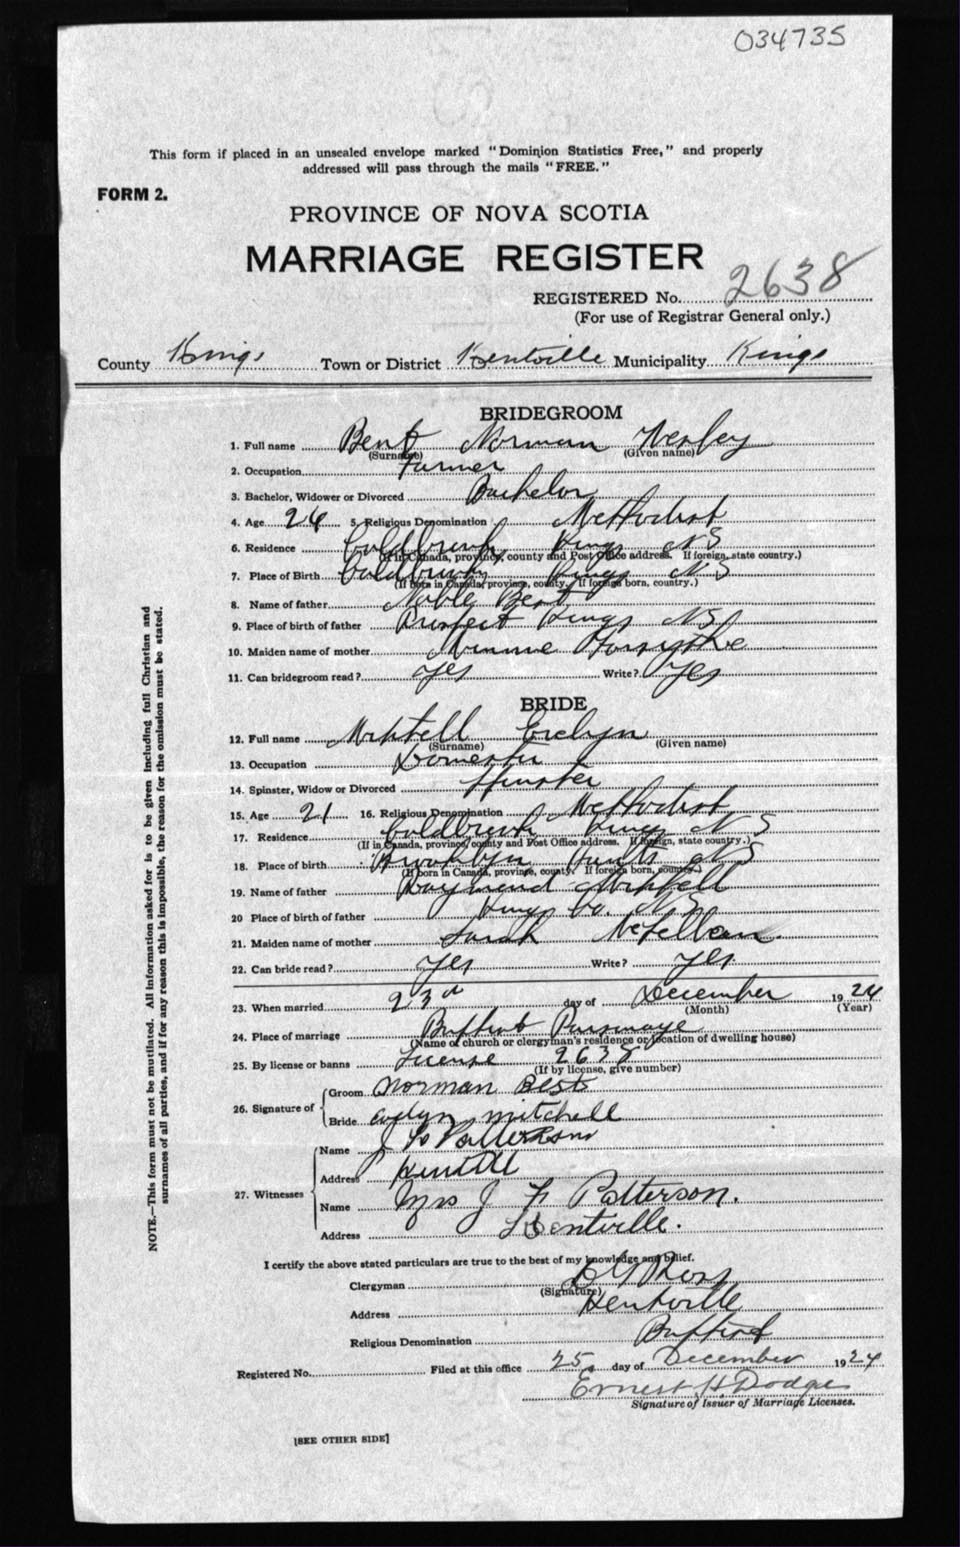 034735
This form if placed in an unsealed envelope marked "Dominion Statistics Free," and properly
addressed will pass through the mails "FREE."
FORM 2.
PROVINCE OF NOVA SCOTIA
MARRIAGE REGISTER
REGISTERED No. 2638
(For use of Registrar General only.)
County Kings Town or District Kentville Municipality Kings
BRIDEGROOM
1. Full name Best Norman Wesley
(Surname) (Given name)
2. Occupation Farmer
3. Bachelor, Widower or Divorced Bachelor
4. Age 24 5. Religious Denomination Methodist
6. Residence Coldbrook, Kings NS
(If in Canada, province, county and Post Office address. If foreign, state country.)
7. Place of Birth Coldbrook Kings NS
(If born in Canada, province, county. If foreign born, country.)
8. Name of father Noble Best
9. Place of birth of father Prospect Kings NS
10. Maiden name of mother Minnie Forsythe
11. Can bridegroom read? Yes Write? Yes
BRIDE
12. Full name Evelyn
(Surname) (Given name)
13. Occupation Domestic
14. Spinster, Widow or Divorced Spinster
15. Age 21 16. Religious Denomination Methodist
17. Residence Coldbrook Kings NS
(If in Canada, province, county and Post Office address. If foreign, state country.)
18. Place of birth Brooklyn Hants NS
(If born in Canada, province, county. If foreign born, country.)
19. Name of father Raymond
20 Place of birth of father Kings Co. NS
21. Maiden name of mother Sarah
22. Can bride read? Yes Write? Yes
23. When married 23rd day of December 1924
(Month) (Year)
24. Place of marriage Baptist Parsonage
(Name of church or clergyman's residence or location of dwelling house)
25. By license or banns License 2638
(If by license, give number)
26. Signature of
Groom Norman Best
Bride Evelyn Mitchell
27. Witnesses
Name Patterson
Address Kentville
Name Mrs J F Patterson.
Address Kentville.
I certify the above stated particulars are true to the best of my knowledge and belief.
Clergyman Ross
(Signature)
Address Kentville
Religious Denomination Baptist
Registered No. Filed at this office 25 day of December 1924
Ernest H. Dodge
Signature of Issuer of Marriage Licenses.
[SEE OTHER SIDE]
NOTE.—This form must not be mutilated. All information asked for is to be given including full Christian and
surnames of all parties, and if for any reason this is impossible, the reason for the omission must be stated.